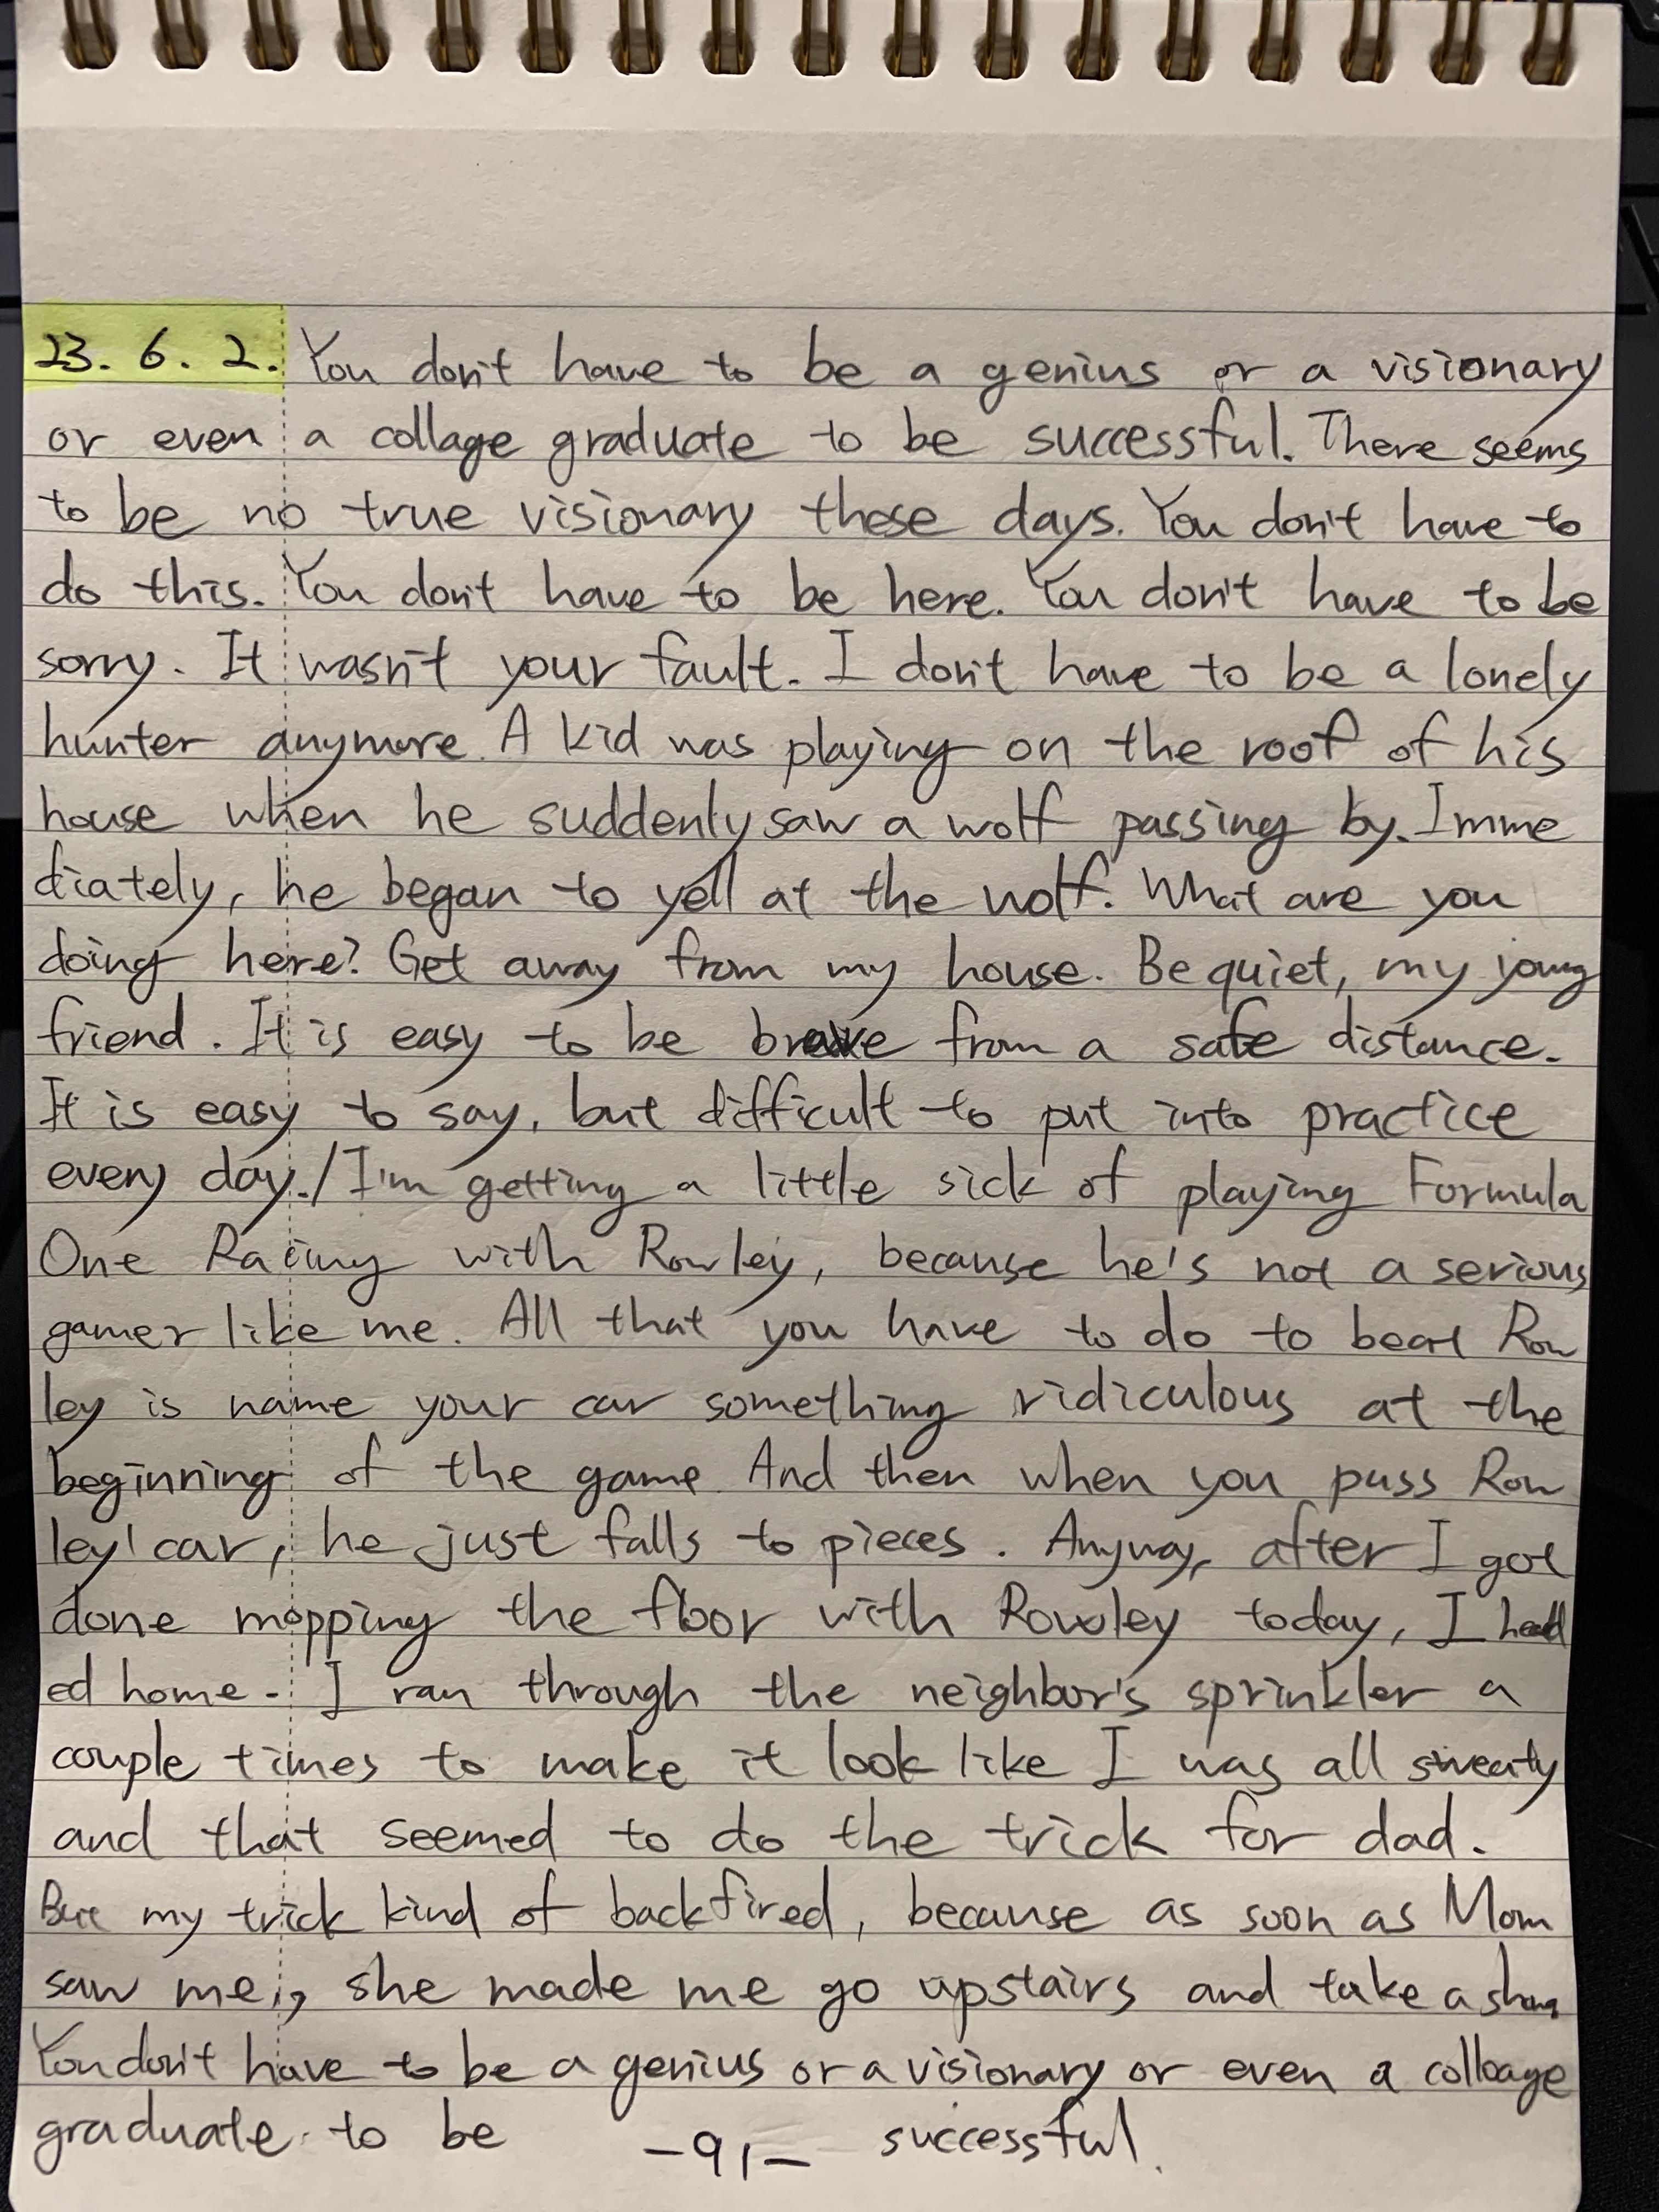 23. 6. 2. You don't have to be a genius or a visionary
or even a collage graduate to be successful. There seems
to be no true visionary these days. You don't have to
do this. You don't have to be here. You don't have to be
sorry. It wasn't your fault. I don't have to be a lonely
hunter anymore. A kid was playing on the roof of his
house when he suddenly saw a wolf passing by. Imme
diately, he began to yell at the wolf. What are you
doing here? Get away from my house. Be quiet, my young
friend. It is easy to be brave from a safe distance.
It is easy to say, but difficult to put into practice
every day./ I'm getting a little sick of playing Formula
One Racing with Rowley, because he's not a serious
gamer like me. All that you have to do to beat Row
ley is name your car something ridiculous at the
beginning of the game. And then when you puss Row
ley' car, he just falls to pieces. Anyway, after I got
done mopping the floor with Rowley today, I head
ed home. I ran through the neighbor's sprinkler a
couple times to make it look like I was all sweaty
and that seemed to do the trick for dad.
But my trick kind of backfired, because as soon as Mom
saw me, she made me go upstairs and take a
You don't have to be a genius or a visionary or even a colleage
graduate to be successful.
-91-